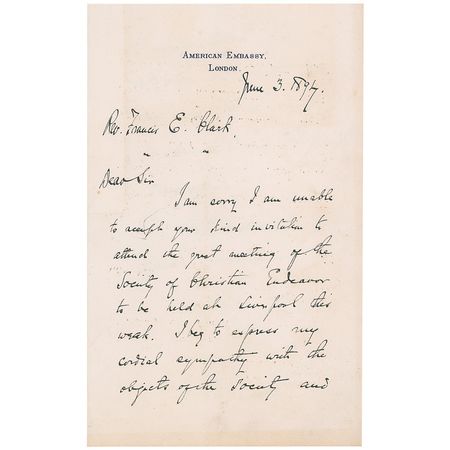 American Embassy,
London
June 3. 1897.
Rev. Francis E. Clark.
" "
Dear Sir
I am sorry I am unable
to accept your kind invitation to
attend the great meeting of the
Society of Christian Endeavor
to be held at Liverpool this
week. I beg to express my
cordial sympathy with the
objects of the Society and